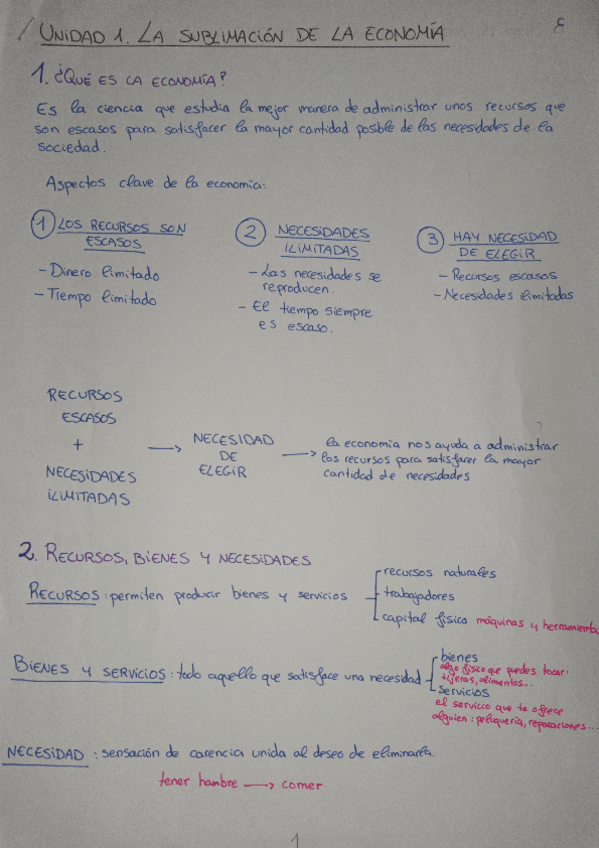 UNIDAD 1. LA SUBLIMACIÓN DE LA ECONOMÍA
1. ¿QUÉ ES LA ECONOMÍA?
Es la ciencia que estudia la mejor manera de administrar unos recursos que
son escasos para satisfacer la mayor cantidad posible de las necesidades de la
sociedad.
Aspectos clave de la economía:
1 LOS RECURSOS SON
ESCASOS
- Dinero limitado
- Tiempo limitado
2 NECESIDADES
ILIMITADAS
- Las necesidades se
reproducen.
- El tiempo siempre
es escaso.
3 HAY NECESIDAD
DE ELEGIR
- Recursos escasos
- Necesidades ilimitadas
RECURSOS
ESCASOS
+
NECESIDADES
ILIMITADAS
→ NECESIDAD
DE
ELEGIR
→ la economía nos ayuda a administrar
los recursos para satisfacer la mayor
cantidad de necesidades
2. RECURSOS, BIENES Y NECESIDADES
RECURSOS: permiten producir bienes y servicios
recursos naturales
trabajadores
capital físico máquinas y herramienta
BIENES Y SERVICIOS: todo aquello que satisface una necesidad
bienes
algo físico que puedes tocar:
tijeras, alimentos...
servicios
el servicio que te ofrece
alguien: peluquería, reparaciones...
NECESIDAD: sensación de carencia unida al deseo de eliminarla.
tener hambre → comer
1